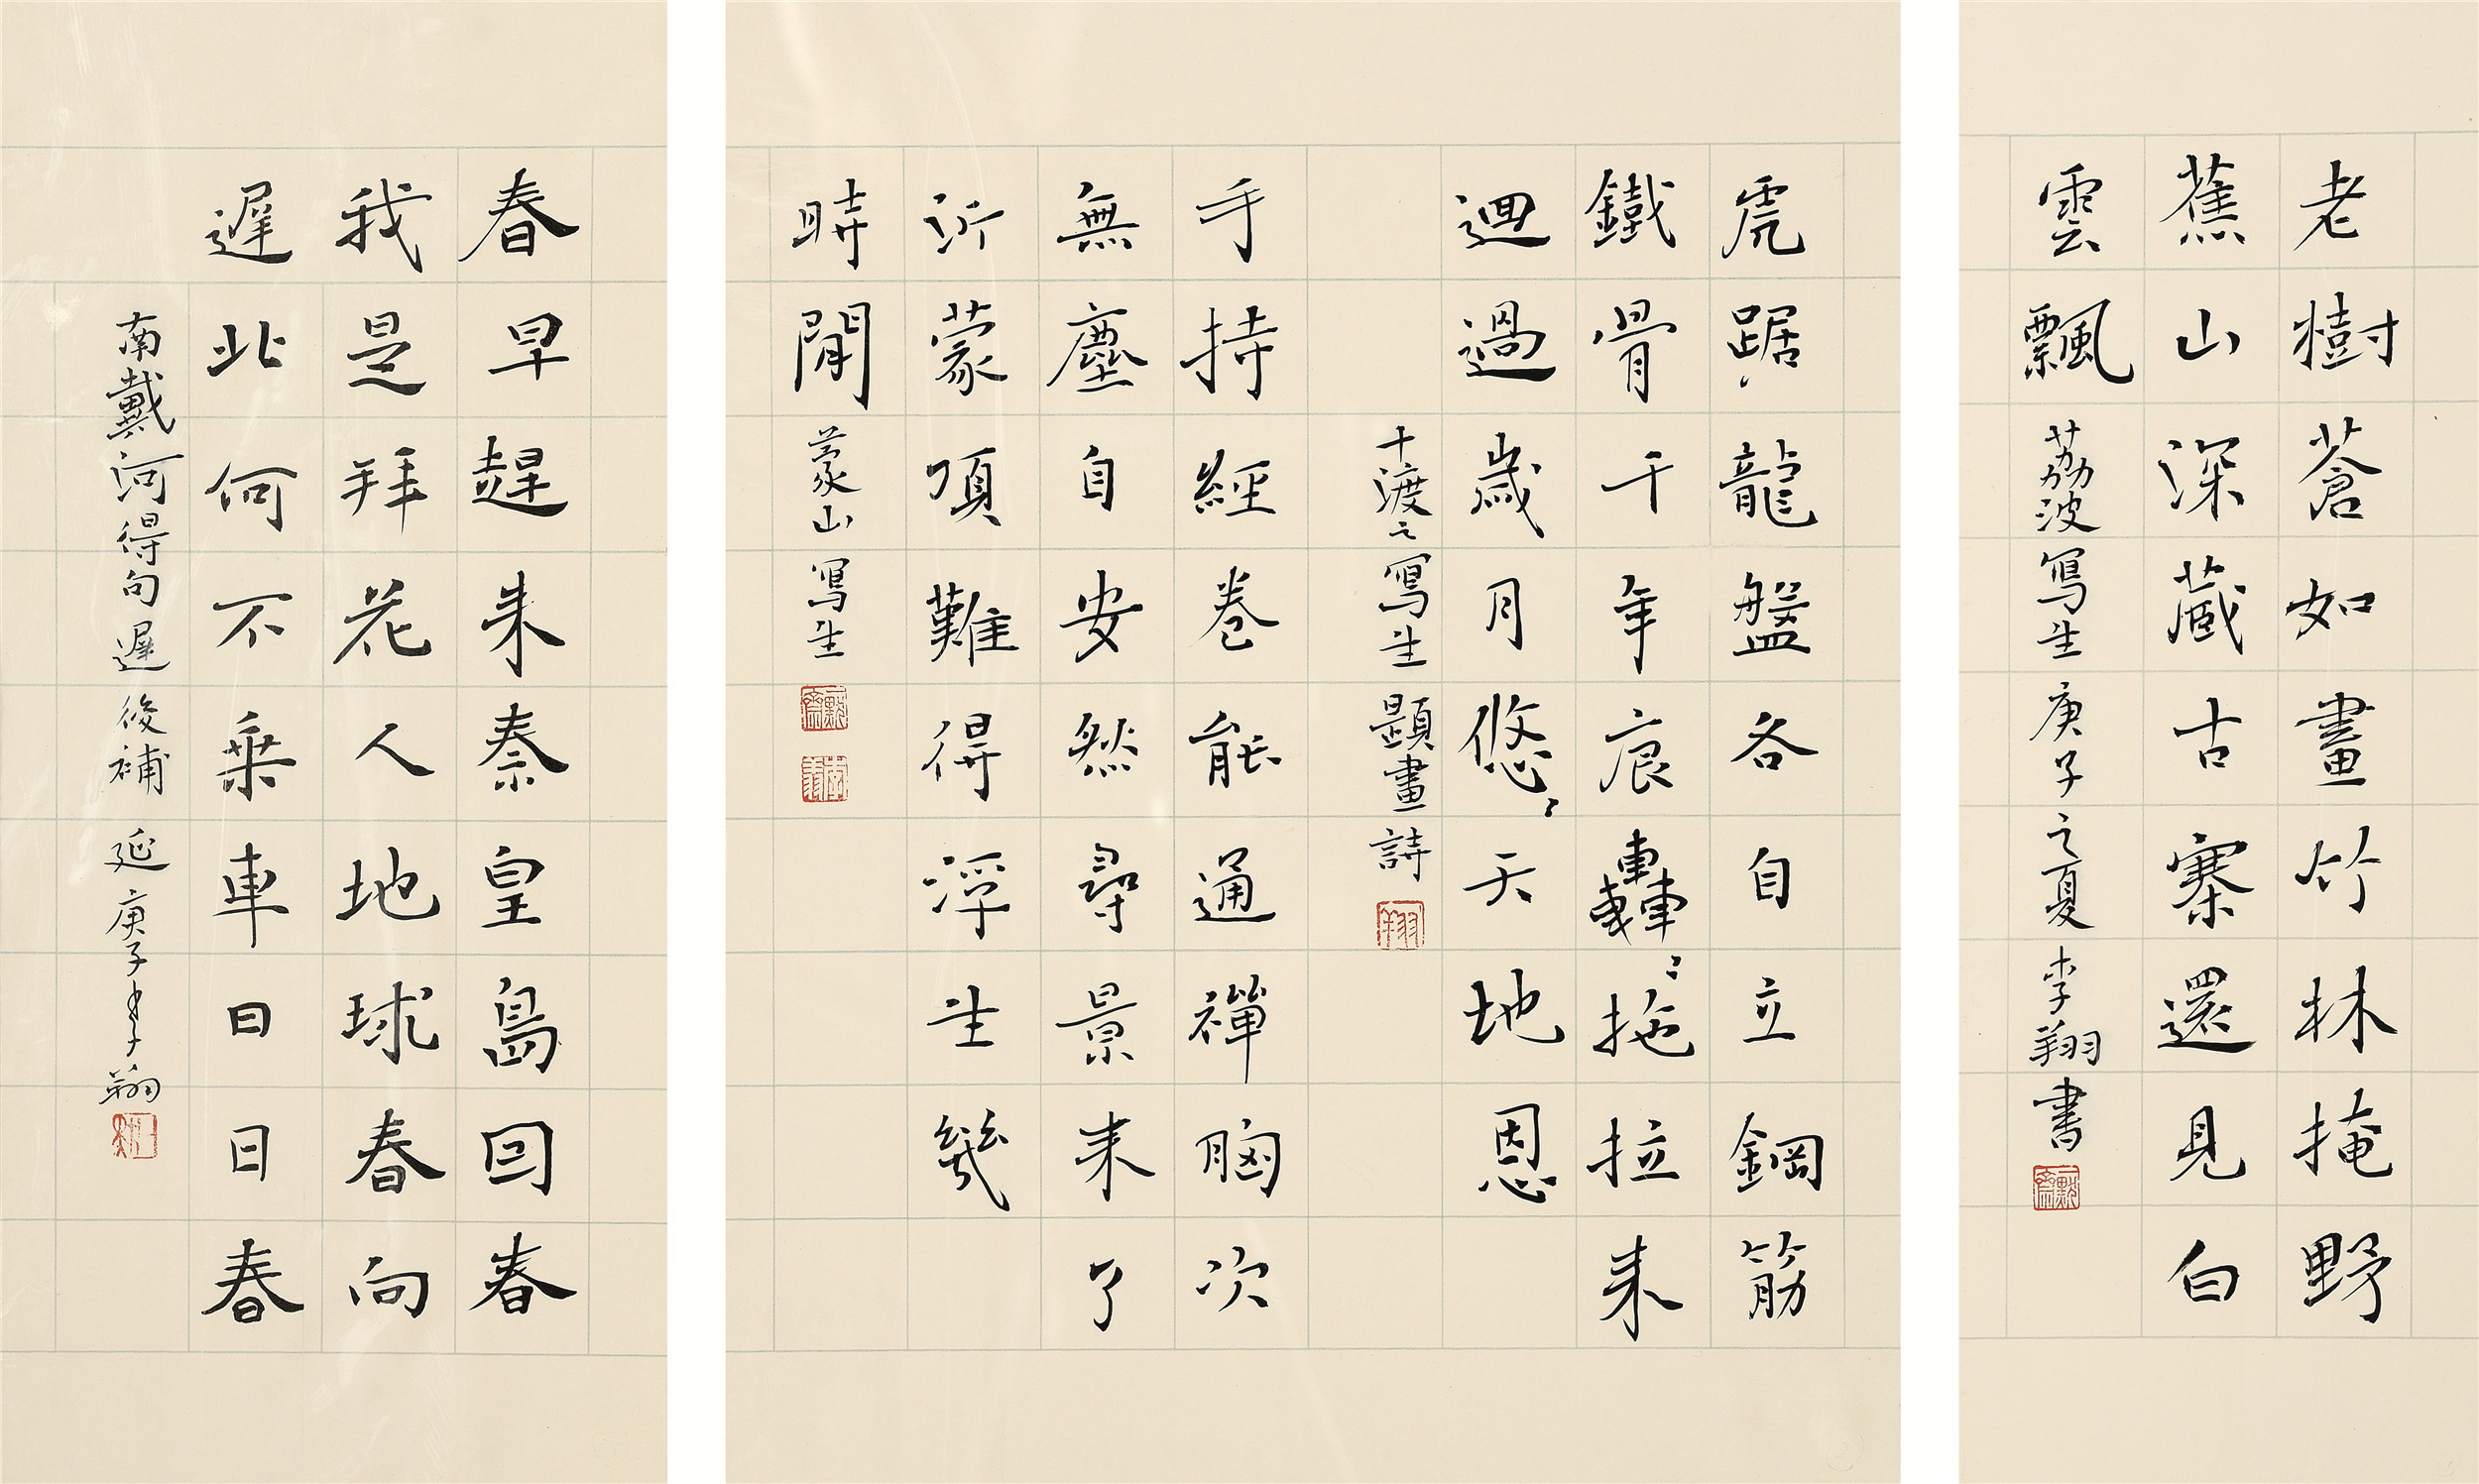 老樹蒼如畫竹林掩野
蕉山深藏古寨還見白
雲飄 荔波寫生 庚子之夏 李翔書
虎踞龍盤各自立鋼筋
鐵骨千年痕轟〻拖拉來
迴過歲月悠〻天地恩
十渡之寫生題畫詩 翔
手持經卷能通禪胸次
無塵自安然尋景來了
沂蒙項難得浮生幾
時閒 蒙山寫生
春早趕來秦皇島回春
我是拜花人地球春向
遲北何不乘車日日春
南戴河得句遲後補 延庚子李翔